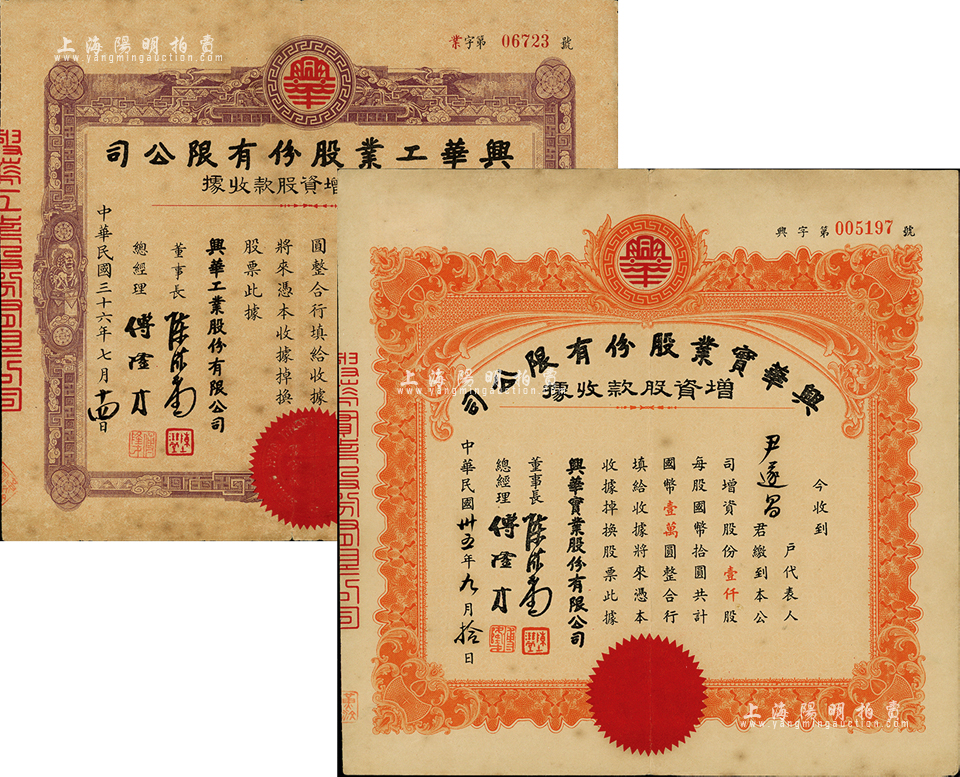 上海陽明拍賣
www.yangmingauction.com
業字第 06723 號
興華
興華工業股份有限公司
增資股款收據
圓整合行填給收據
將來憑本收據掉換
股票此據
興華工業股份有限公司
董事長
總經理 傅隆才
中華民國三十六年七月十四日
興字第 005197 號
興華
興華實業股份有限公司
增資股款收據
上海陽明拍賣
www.yangmingauction.com
今收到
戶代表人
尹遂昌 君繳到本公
司增資股份壹仟股
每股國幣拾圓共計
國幣壹萬圓整合行
填給收據將來憑本
收據掉換股票此據
興華實業股份有限公司
董事長
總經理 傅隆才
中華民國卅五年九月拾日
上海陽明拍賣
www.yangmingauction.com